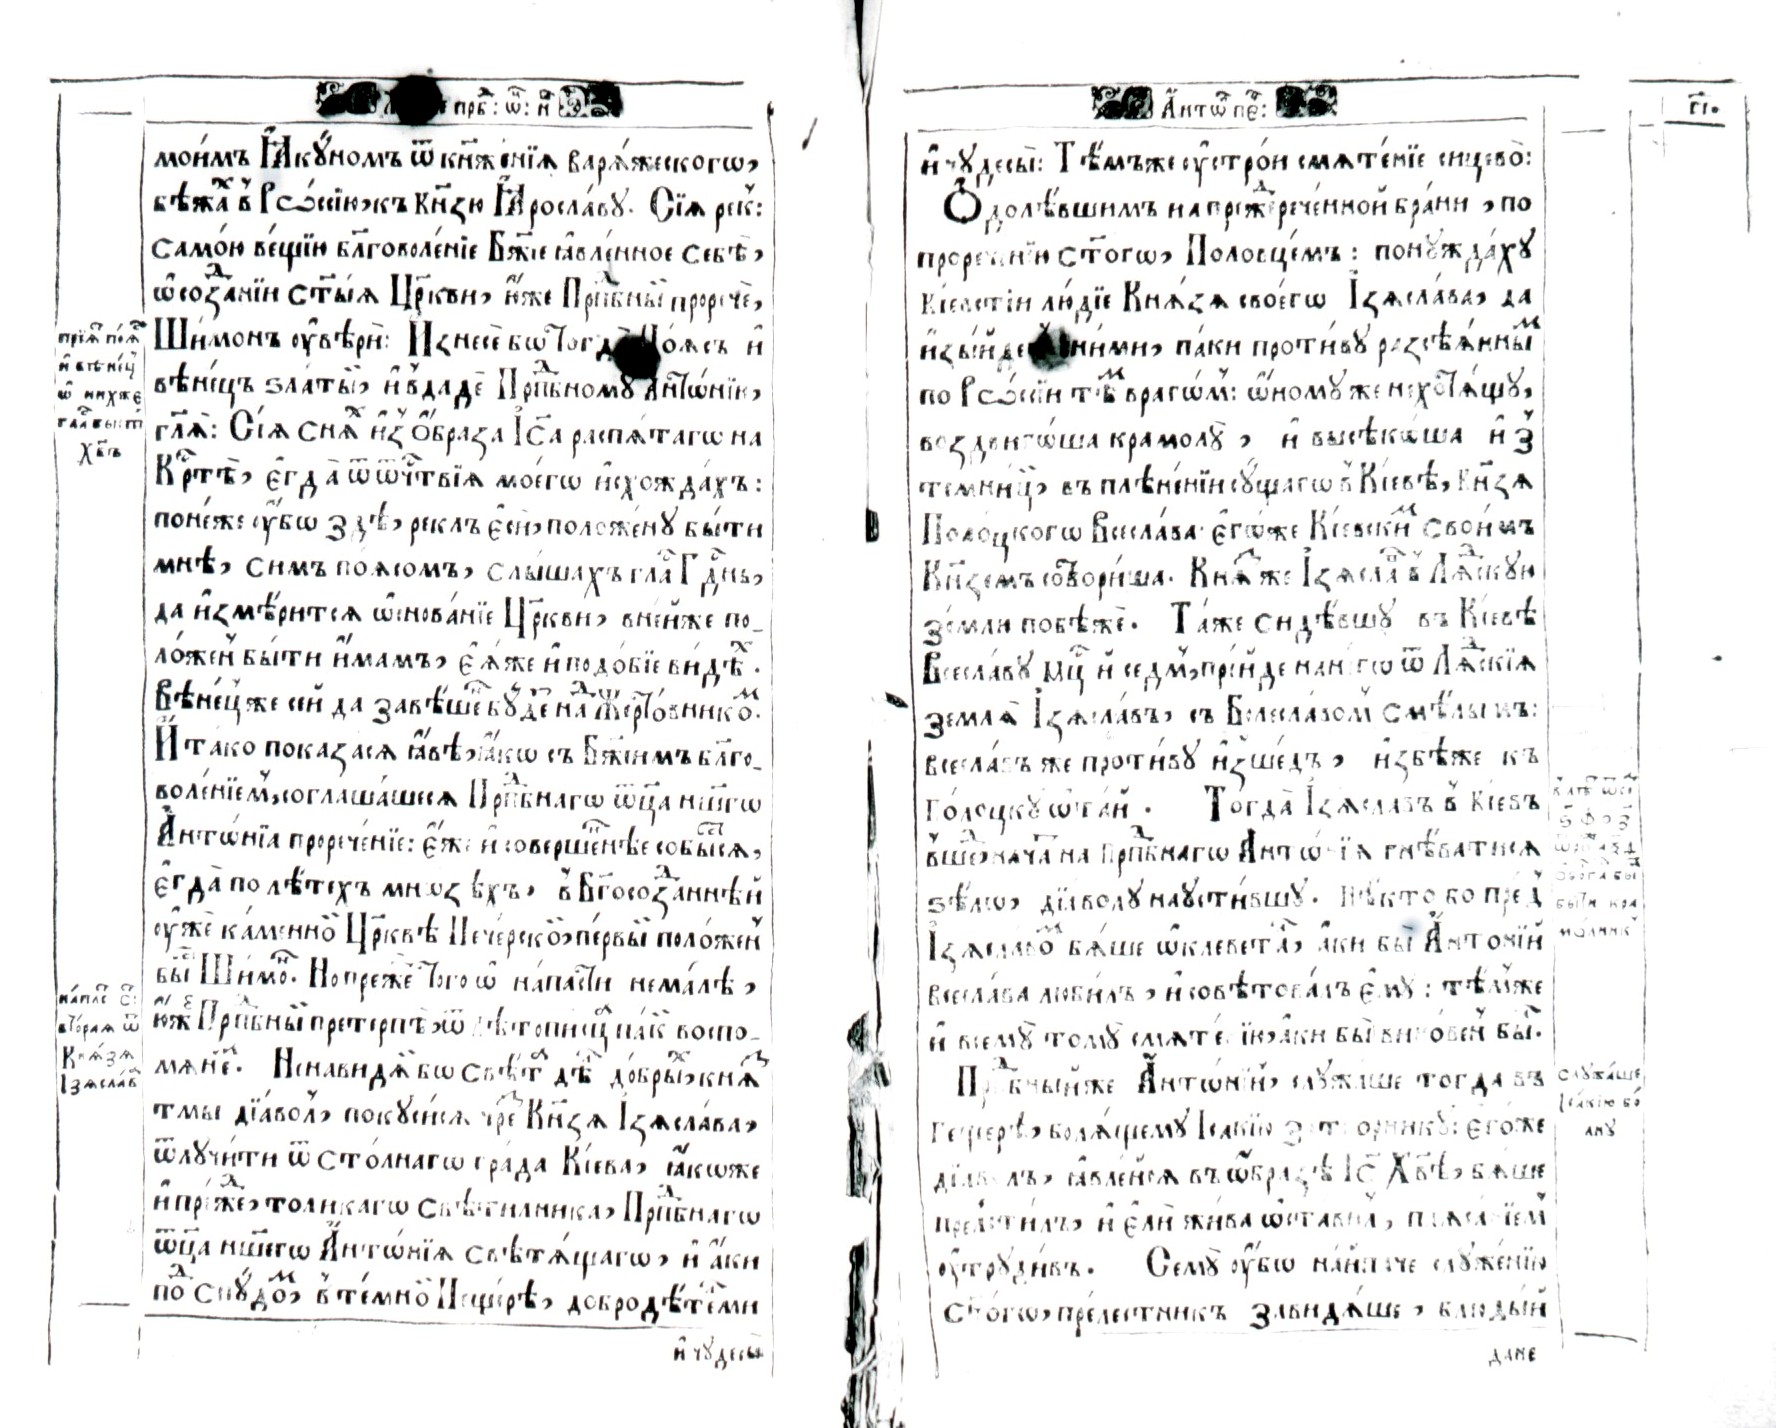 прпⷣб: ѿ: н҃
моимъ Ꙗкꙋномъ ѿ кнѧженїѧ варѧжескогѡ,
бѣжаⷯ в̾ Рѡссїю, къ кн҃зю Ꙗрославꙋ. Сїѧ рек̾:
самою вещїю бл҃говоленїе Бж҃їе ꙗвленное себѣ,
ѡ созⷣанїи ст҃ыѧ Цр҃кви, юже Прпⷣбный прорече,
Шимонъ ᲂувѣри: Изнесе бо тогда Поѧсъ и
вѣнецъ златый, и в̾даде Прпⷣбномꙋ Антѡнїю,
гл҃ѧ: Сїѧ снѧⷯ из̾ Ѻбраза Іс҃а распѧтагѡ на
Крⷭ҇тѣ, єгда ѿ ѻтч҃твїѧ моегѡ исхождахъ:
понеже ᲂубо здѣ, реклъ єси, положенꙋ быти
мнѣ, симъ поѧсомъ, слышахъ глⷭ҇а Гдⷭ҇нь,
да измѣритсѧ ѡснованїе Цр҃кви, в нейже по_
ложен̾ быти имамъ, єѧже и подобїе видѣⷯ.
Вѣнец̾ же сей да завѣшенъ бꙋдеⷮ надⷣ Жертовникоⷨ.
И тако показасѧ ꙗвѣ, ꙗко съ Бж҃їимъ бл҃го_
воленїем̾, соглашашесѧ Прпⷣбнагѡ ѿц҃а нш҃егѡ
Антѡнїѧ проречєнїе: єже и совершеннѣе собысⷭ҇ѧ,
єгда по лѣтехъ мнозѣхъ, в̾ Бг҃осозⷣаннѣй
ᲂуже каменноⷨ Цр҃квѣ Печерскоⷨ, первый положен̾
быⷭ҇ Шимоⷩ. Но преже того ѡ напасти немалѣ,
юже Прпⷣбный претерпѣ, ѿ лѣтописца паки воспо_
мѧнеⷨ. Ненавидѧй бо свѣтⷧ дѣⷧ добрыⷯ, кнѧⷥ
тмы дїавол̾, покꙋсисѧ чреⷥ Кн҃зѧ Ізѧслава,
ѿлꙋчити ѿ столнагѡ града Кїева, ꙗкоже
и преⷤде, толикагѡ свѣтилника, Прпⷣбнагѡ
ѿц҃а нш҃егѡ Антѡнїѧ свѣтѧщагѡ, и аки
поⷣ спꙋдоⷨ, в̾ темноⷨ Пещерѣ, добродѣтелⷨми
и чꙋдесы
прїѧтⷭ҇ поѧⷭ҇
и вѣнец̾
ѡ нихже
глⷭ҇а быⷭ҇
хв҃ъ
напаⷭ҇
вторая ѿ
Кнѧзѧ
Ізѧслав̾
Антѡⷩ прⷣ:
гі.
и чꙋдесы: Тѣмъже ᲂустрои смѧтенїе сицево:
Ѻдолѣвшимъ на прежⷣереченной брани, по
проречєнїю ст҃огѡ, Половцемъ: понꙋждахꙋ
Кїевстїи людїе Кнѧзѧ своегѡ Ізѧслава, да
изыйдеⷮ с ними, паки противꙋ разсѣѧнныⷨ
по Рѡссїи тѣⷨ врагѡм̾: ѡномꙋ же не хотѧщꙋ,
воздвигѡша крамолꙋ, и высѣкѡша и з̾
темниц̾, въ плѣненїи сꙋщагѡ в̾ Кїевѣ, Кн҃зѧ
Полоцкогѡ Всеслава. єгѡже Кїевскиⷨ своимъ
Кн҃земъ сотвориша. Кнѧⷥже Ізѧслаⷡ в̾ Лѧⷣскꙋю
землю побѣже. Таже сидѣвшꙋ въ Кїевѣ
Всеславꙋ мцⷭ҇ъ и седм̾, прїйде на негѡ ѿ Лѧⷣскїѧ
землѧ Ізѧславъ, съ Болеславом̾ смѣлымъ:
всеславъ же противꙋ из̾шедъ, избѣже къ
Полоцкꙋ ѡтай. Тогда Ізѧславъ в̾ Кїевъ
в̾шеⷣ, начаⷮ на Прпⷣбнагѡ Антѡнїѧ гнѣватисѧ
ѕѣло, дїаволꙋ наꙋстившꙋ. Нѣкто бо преⷣ
Ізѧславоⷨ бѧше ѡклеветаⷧ, аки бы Антоній
Всеслава любилъ, и совѣтовалъ ємꙋ: тѣмже
и всемꙋ томꙋ смѧтенїю, аки бы виновен̾ быⷧ.
Прпⷣбный же Антѡнїй, слꙋжаше тогда въ
пещерѣ, болѧщемꙋ Ісакїю затворникꙋ: єгоже
дїаволъ, ꙗвлейсѧ въ ѡбразѣ Іс҃ Хв҃ѣ, бѧше
прелстилъ, и єлѣ жива ѡставил̾, плѧсанїем̾
ᲂутрꙋдивъ. Семꙋ ᲂубо наипаче слꙋженїю
ст҃огѡ, прелестникъ завидѧше, блюдый
да не
слꙋжаше
Ісакїю бо
лнꙋ